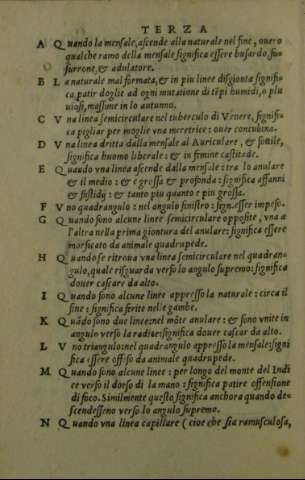 TERZA
A Quando la mensale, ascende alla naturale nel fine, ouero
qualche ramo della mensale significa essere busardo, su-
surrone, & adulatore.
B La naturale mal formata, & in piu linee disgionta signifi-
ca, patir doglie ad ogni mutatione di tẽpi humidi, o plu
uiosi, massime in lo autunno.
C Vna linea semicirculare nel tuberculo di Venere, signifi-
ca pigliar per moglie vna meretrice: ouer concubina.
D Vna linea dritta dalla mensale al Auriculare, & sottile,
significa huomo liberale: & in femine castitade.
E Quando vna linea ascende dalla mensale: tra lo anulare
& il medio: & e grossa & profonda: significa affanni
& fastidij: & tanto piu quanto e piu grossa.
F Vno quadrangulo: nel angulo sinistro: sign. esser impeso.
G Quando sono alcune linee semicirculare opposite, vna a
l'altra nella prima giontura del anulare: significa essere
morsicato da animale quadrupede.
H Quando se ritroua vna linea semicirculare nel quadran-
gulo, quale risguarda verso lo angulo supremo: significa
douer cascare da alto.
I Quando sono alcune linee appresso la naturale: circa il
fine: significa ferite nelle gambe.
K Quãdo sono due linee: nel mõte anulare: & sono vnite in
angulo verso la radice: significa douer cascar da alto.
L Vno triangulo: nel quadrangulo appresso la mensale: signi
fica essere offeso da animale quadrupede.
M Quando sono alcune linee: per longo del monte del Indi
ce verso il dorso di la mano: significa patire offensione
di foco. Similmente questo significa anchora quando de-
scendesseno verso lo angulo supremo.
N Quando vna linea capillare (cioe che sia ramusculosa,